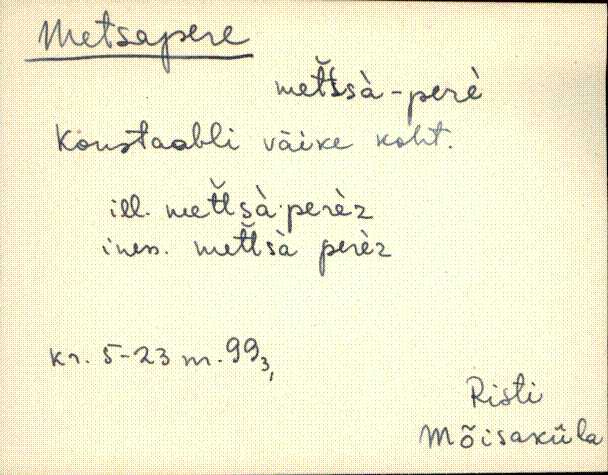 Metsapere
met̆t̆sà-perè
Konstaabli väike koht.
ill. met̆t̆sà·perèz
iness. met̆t̆sà perèz
kr. 5-23 m. 99₃,
Risti
Mõisaküla